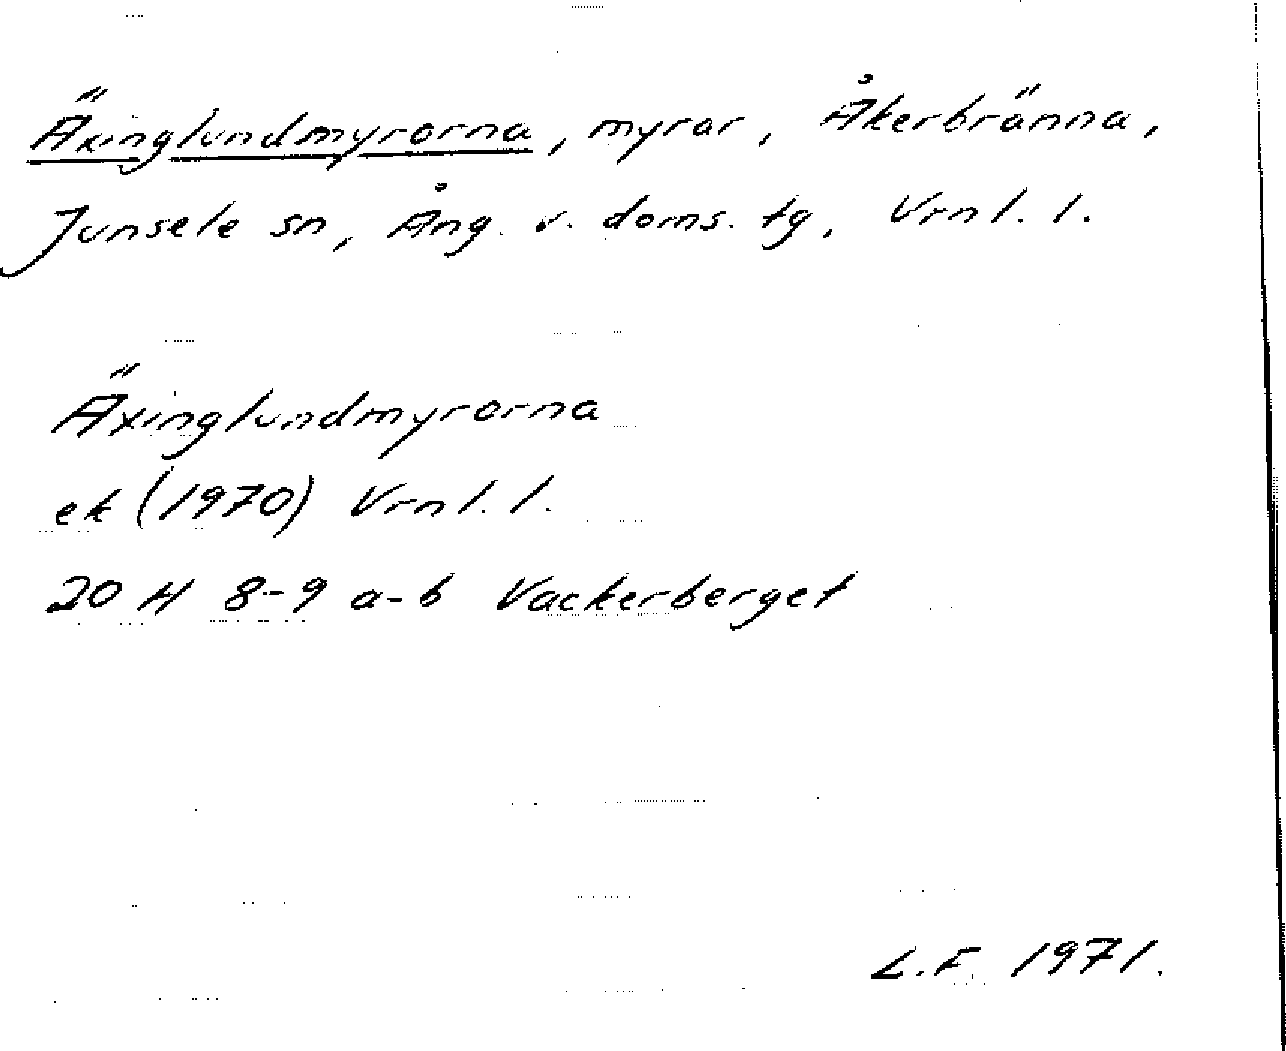 Äxinglundmyrorna, myrar, Åkerbränna,
Junsele sn, Ång. v. doms. tg, Vrnl. l.
Äxinglundmyrorna
ek (1970) Vrnl. l.
20 H 8-9 a-b Vackerberget
L.F. 1971.